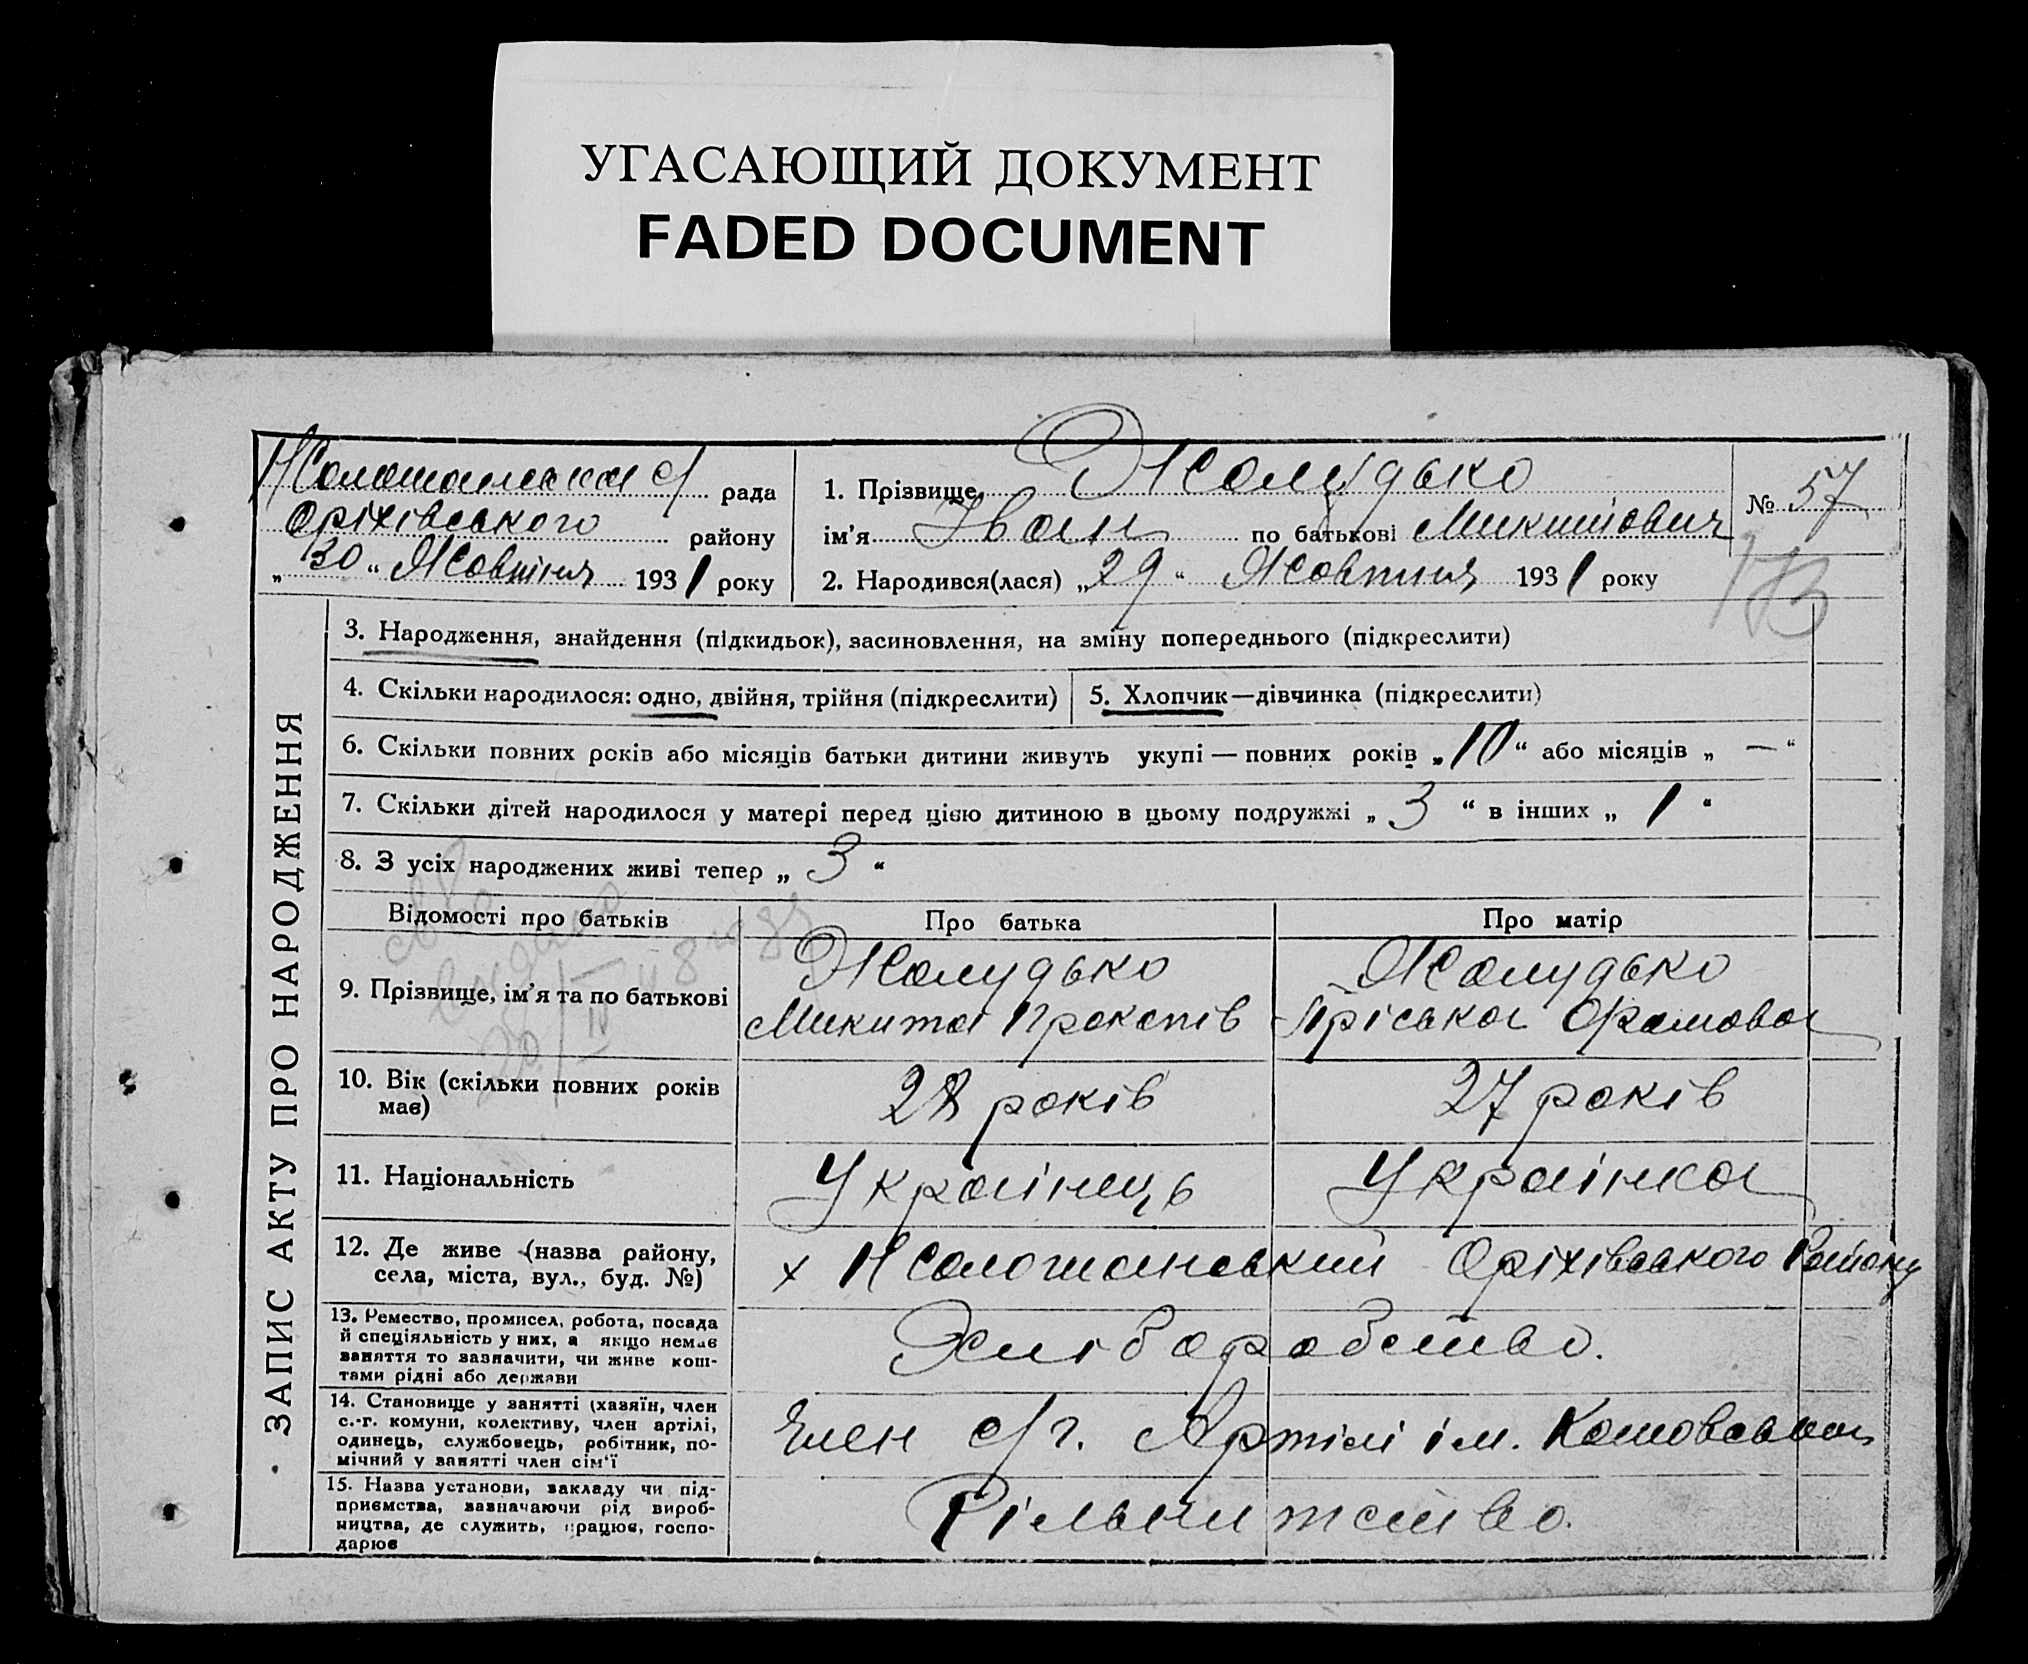 УГАСАЮЩИЙ ДОКУМЕНТ
FADED DOCUMENT
с/ рада
Оріхівського району
„30“ Жовтня 1931 року
1. Прізвище Жолудько
ім'я Іван по батькові Микитович
№ 57
2. Народився(лася) „29“ Жовтня 1931 року
173
ЗАПИС АКТУ ПРО НАРОДЖЕННЯ
3. Народження, знайдення (підкидьок), засиновлення, на зміну попереднього (підкреслити)
4. Скільки народилося: одно, двійня, трійня (підкреслити)
5. Хлопчик—дівчинка (підкреслити)
6. Скільки повних років або місяців батьки дитини живуть укупі — повних років „10“ або місяців „ — “
7. Скільки дітей народилося у матері перед цією дитиною в цьому подружжі „ 3 “ в інших „ 1 “
8. З усіх народжених живі тепер „ 3 “
Відомості про батьків
Про батька
Про матір
9. Прізвище, ім'я та по батькові
Жолудько
Микита Прокопів
Жолудько
Пріська
10. Вік (скільки повних років має)
28 років
27 років
11. Національність
Українець
Українка
12. Де живе (назва району,
села, міста, вул., буд. №)
х Оріхівського Району
13. Ремество, промисел, робота, посада
й спеціяльність у них, а якщо немає
заняття то зазначити, чи живе кош-
тами рідні або держави
Хліборобство.
14. Становище у занятті (хазяїн, член
с.-г. комуни, колективу, член артілі,
одинець, службовець, робітник, по-
мічний у занятті член сім'ї
Член с/г. Артілі ім.
15. Назва установи, закладу чи під-
приємства, зазначаючи рід вироб-
ництва, де служить, працює, госпо-
дарює
Рільництво.